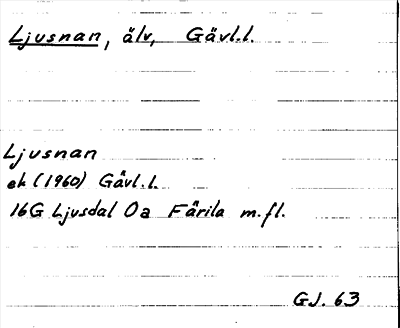 Ljusnan, älv, Gävl.l.
Ljusnan
ek (1960) Gävl.l.
16G Ljusdal 0a Färila m.fl.
GJ. 63